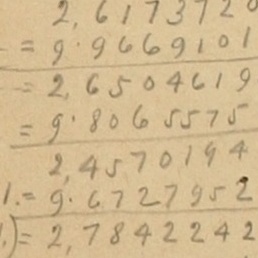 2, 6173720
= 9.9669101
= 2, 6504619
= 9.8065575
2, 4570194
1. = 9.6727952
.) = 2, 7842242